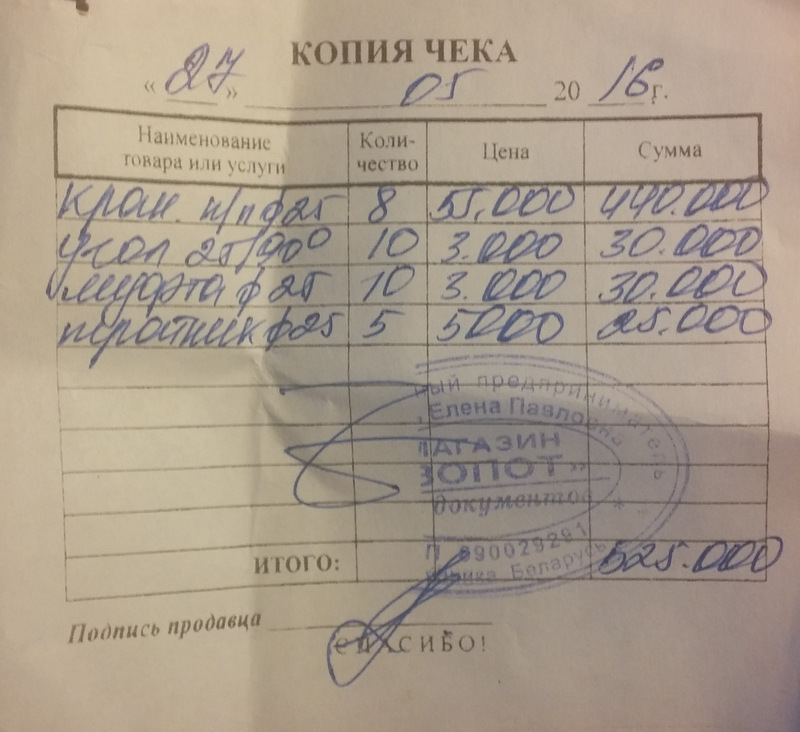 КОПИЯ ЧЕКА
« 27 » 05 20 16 г.
Наименование товара или услуги Коли-чество Цена Сумма
кран п/п ф25 8 55.000 440.000
угол 25/90⁰ 10 3.000 30.000
муфта ф25 10 3.000 30.000
ф25 5 5000 25.000
ный предприниматель
Елена Павловна
МАГАЗИН
ЗОПОТ»
документов
П 690029291
Беларусь
ИТОГО: 525.000
Подпись продавца
СПАСИБО!